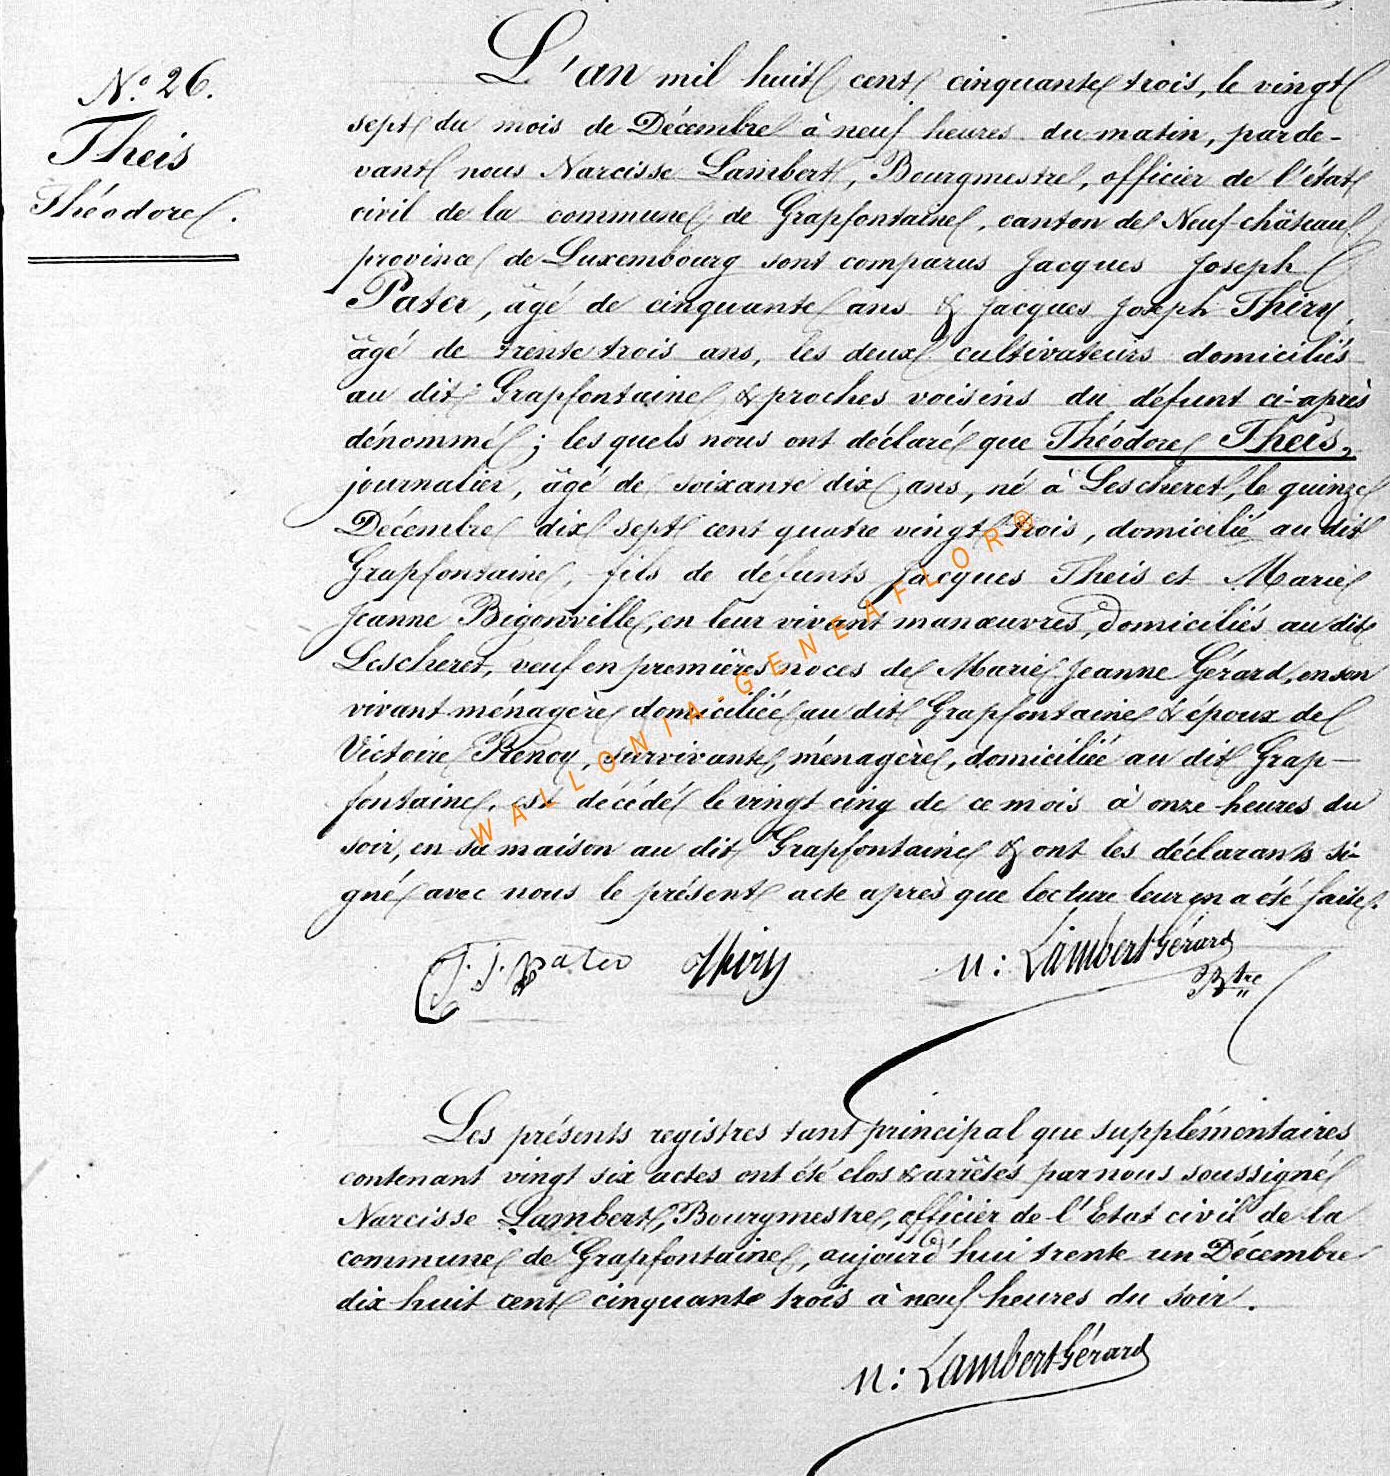 N.° 26.
Theis
Théodore.
L'an mil huit cent cinquante trois, le vingt
sept du mois de Décembre à neuf heures du matin, parde-
vant nous Narcisse Lambert, Bourgmestre, officier de l'état
civil de la commune de Grapfontaine, canton de Neuf-château
province de Luxembourg sont comparus Jacques Joseph
Pater, âgé de cinquante ans & Jacques Joseph Thiry,
âgé de trente trois ans, les deux cultivateurs domiciliés
au dit Grapfontaine & proches voisins du défunt ci-après
dénommé; les quels nous ont déclaré que Théodore Theis,
journalier, âgé de soixante dix ans, né à Lescheret, le quinze
Décembre dix sept cent quatre vingt trois, domicilié au dit
Grapfontaine, fils de défunts Jacques Theis et Marie
Jeanne Bigonville, en leur vivant manœuvres, domiciliés au dit
Lescheret, veuf en premières noces de Marie Jeanne Gérard, en son
vivant ménagère domiciliée au dit Grapfontaine & époux de
Victoire Renoy, survivante, ménagère, domiciliée au dit Grap-
fontaine, est décédé le vingt cinq de ce mois à onze heures du
soir, en sa maison au dit Grapfontaine & ont les déclarants si-
gné avec nous le présent acte après que lecture leur en a été faite.
J. J. Pater Thiry N: Lambert Gérard
Btre
Les présents registres tant principal que supplémentaires
contenant vingt six actes ont été clos & arrêtés par nous soussigné
Narcisse Lambert, Bourgmestre, officier de l'Etat civil de la
commune de Grapfontaine, aujourd'hui trente un Décembre
dix huit cent cinquante trois à neuf heures du soir.
N: Lambert Gérard
WALLONIA-GENEAFLOR®